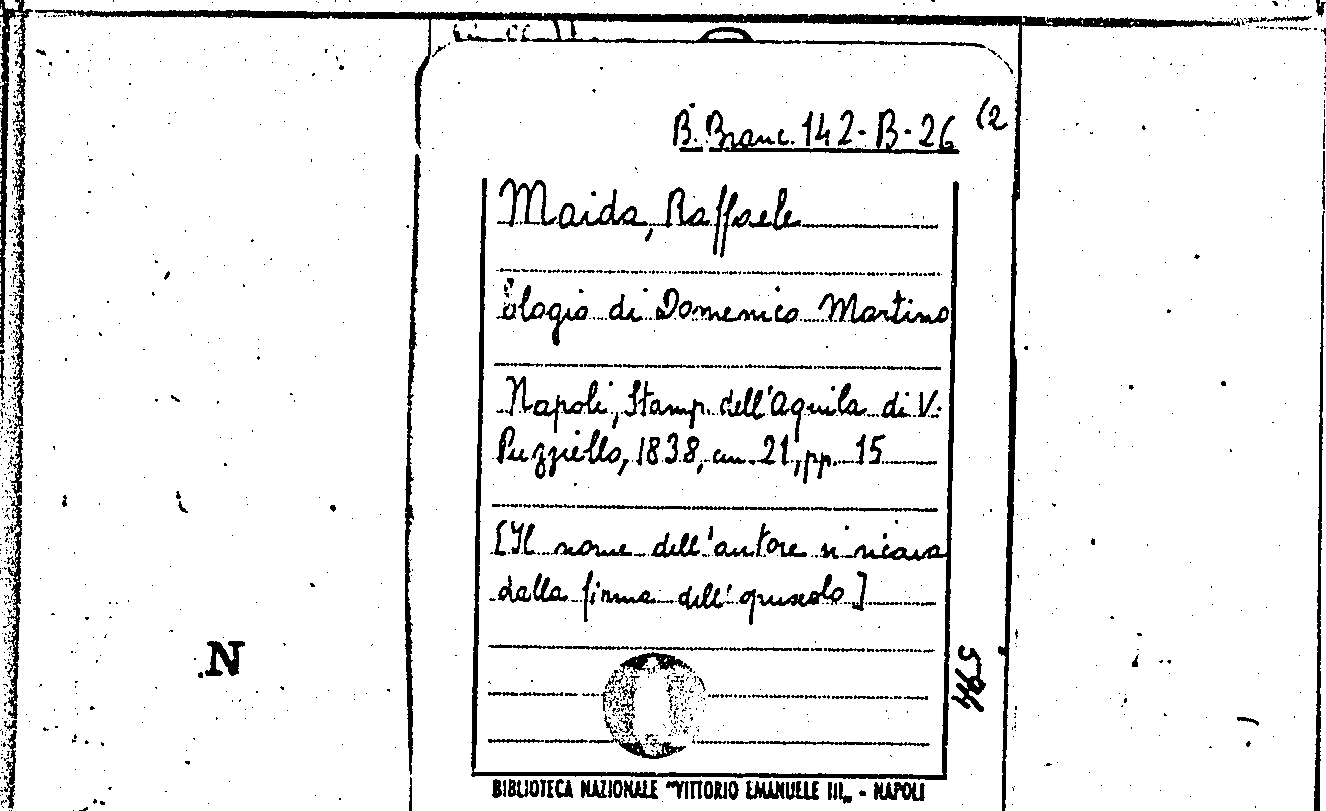 B. Branc. 142-B-26 (2
Maida, Raffaele
Elogio di Domenico Martino
Napoli, Stamp. dell'Aquila di V.
Puzziello, 1838, cm. 21, pp. 15
[Il nome dell'autore si ricava
dalla firma dell'opuscolo]
594
N
BIBLIOTECA NAZIONALE "VITTORIO EMANUELE III„ - NAPOLI